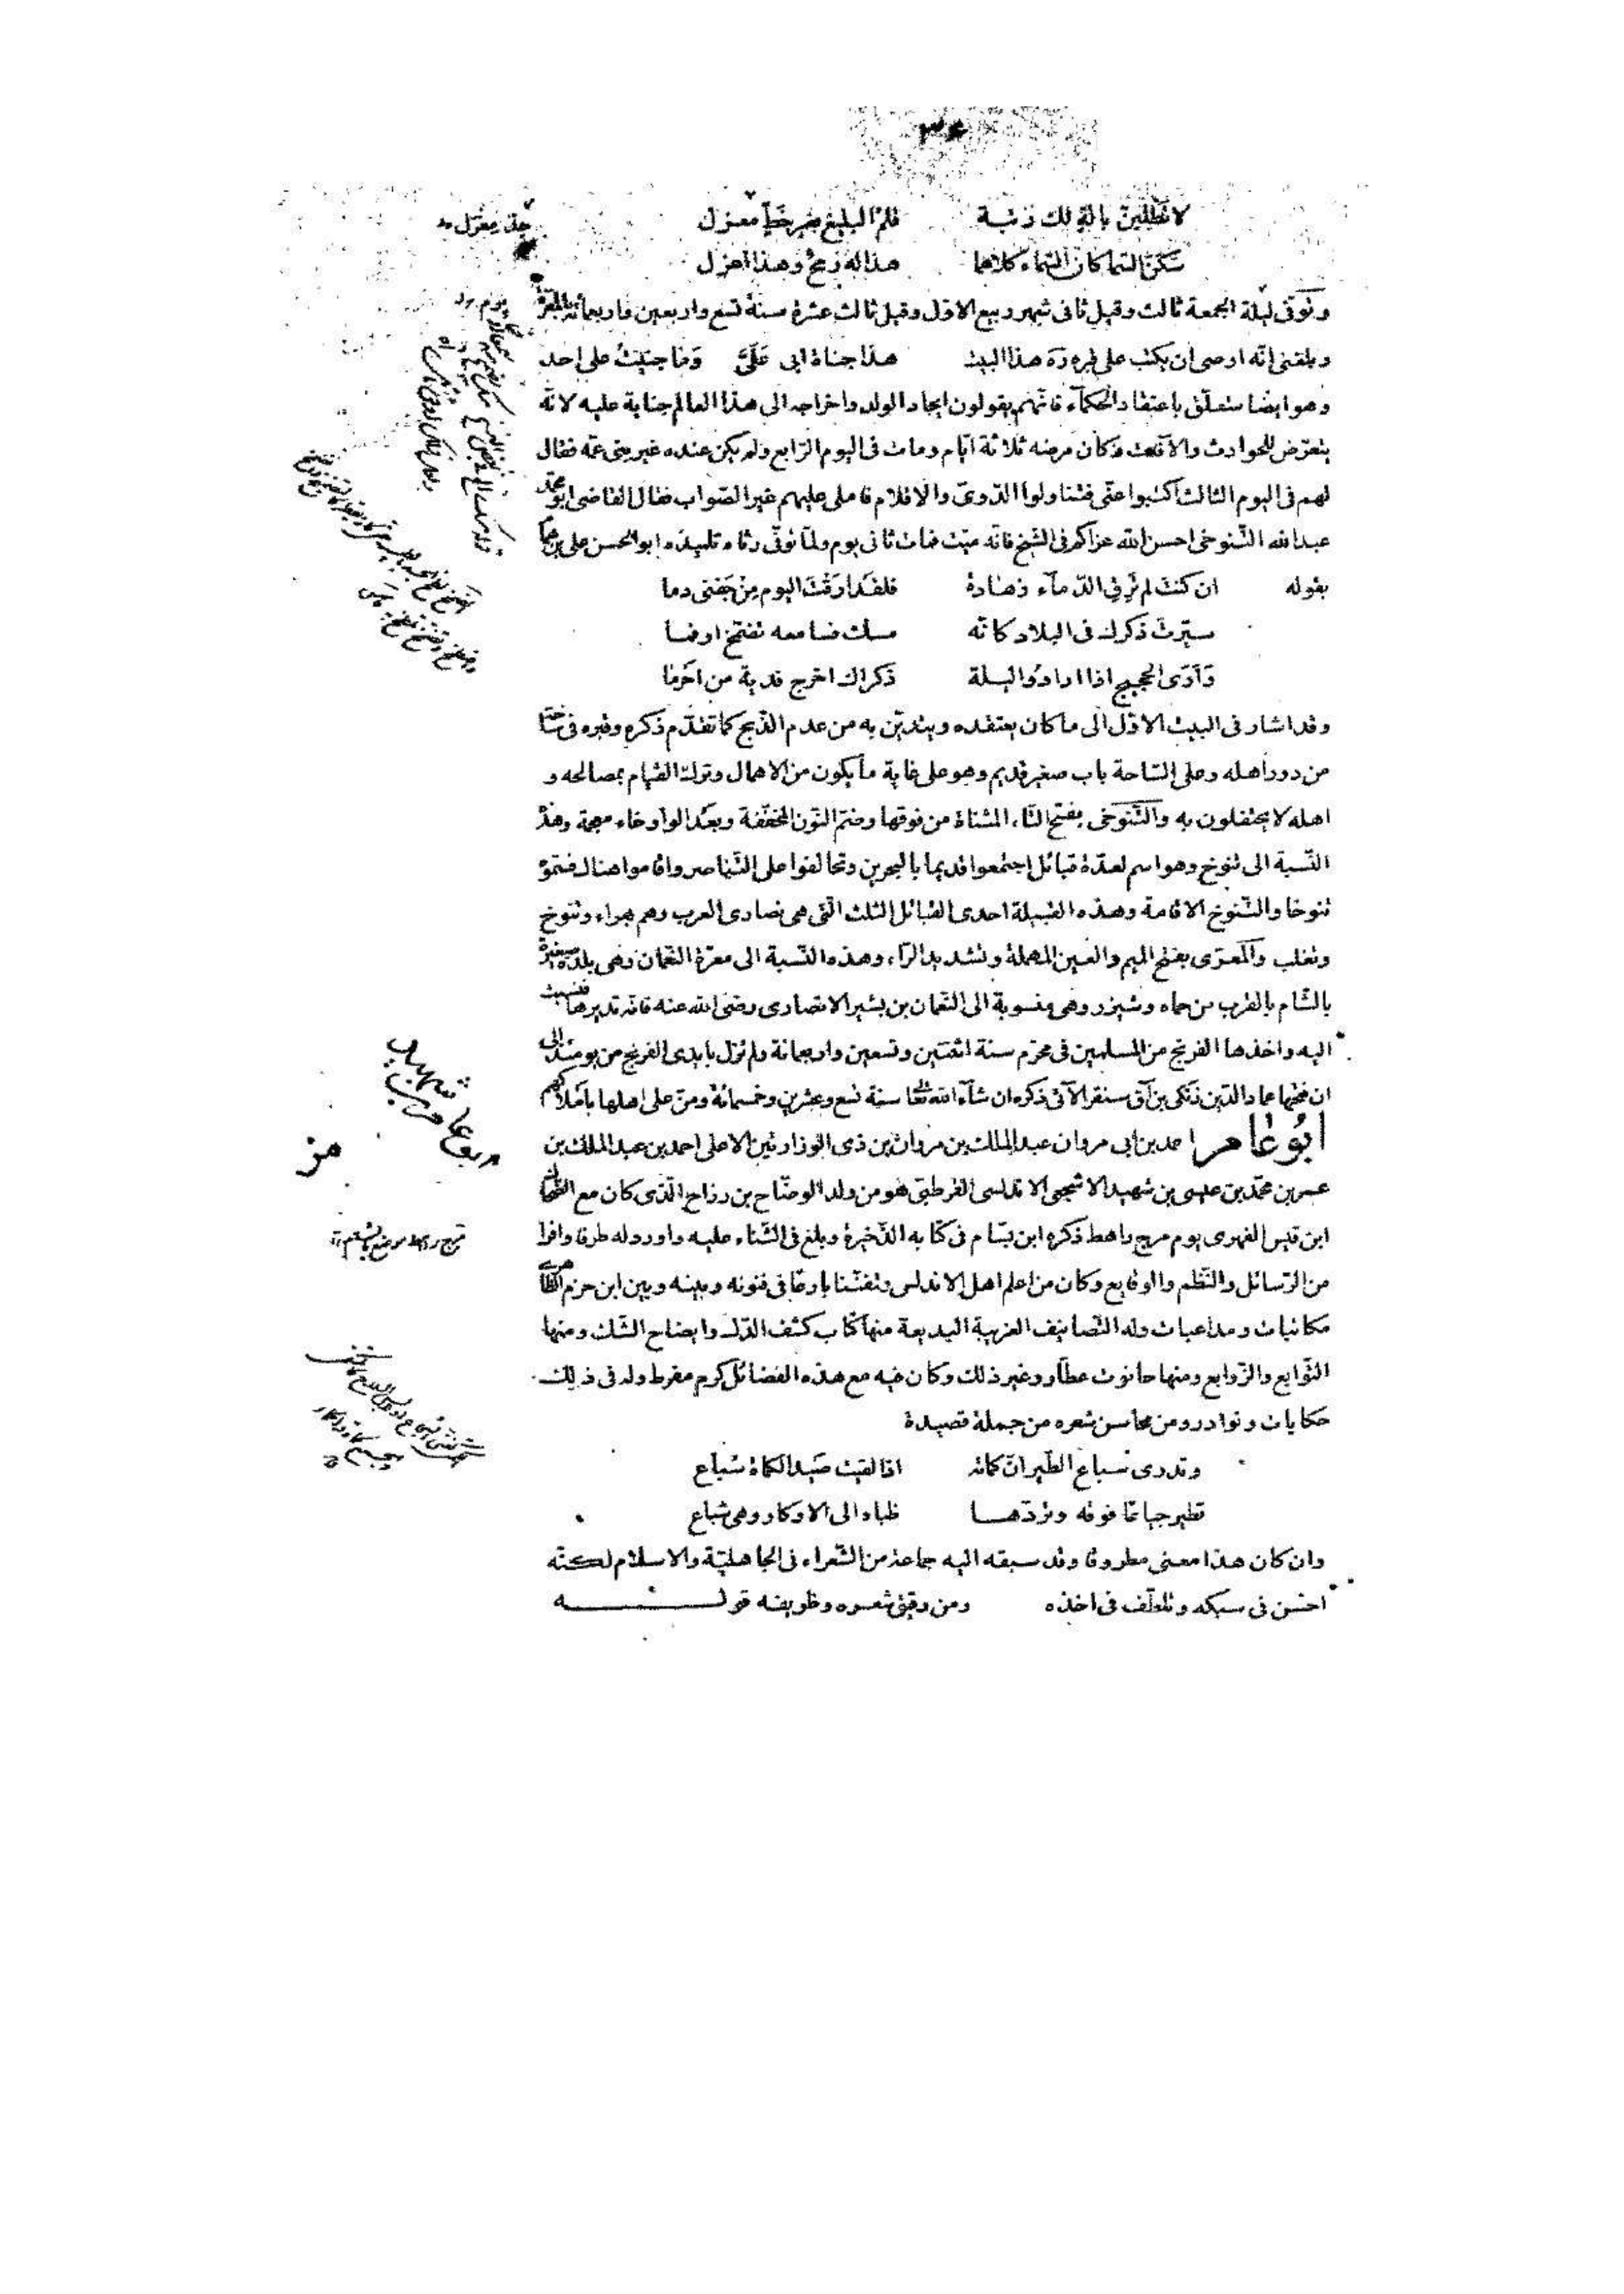 ٣٤
لا تطلبن بآلة لك رتبة قلم البليغ بغير حظ مغزل
سكن السماكان السماء كلاهما هذا له رمح وهذا اعزل
وتوفى ليلة الجمعة ثالث وقيل ثانى شهر ربيع الاول وقيل ثالث عشرة سنة تسع واربعين واربعمائة بالمعرة
وبلغنى انه اوصى ان يكتب على قبره هذا البيت هذا جناه ابى علىّ وما جنيت على احد
وهو ايضا متعلق باعتقاد الحكماء فانهم يقولون ايجاد الولد واخراجه الى هذا العالم جناية عليه لانه
يتعرض للحوادث والآفات وكان مرضه ثلاثة ايام ومات فى اليوم الرابع ولم يكن عنده غير بنى عمه فقال
لهم فى اليوم الثالث اكتبوا عنى فتناولوا الدوىّ والاقلام فاملى عليهم غير الصواب فقال القاضى ابو محمد
عبد الله التنوخى احسن الله عزاكم فى الشيخ فانه ميت فمات ثانى يوم ولما توفى رثاه تلميذه ابو الحسن على بن همام
بقوله ان كنت لم ترق الدماء زهادة فلقد ارقت اليوم من جفنى دما
سيّرت ذكرك فى البلاد كانه مسك فسامعه تضمخ او فما
وارى الحجيج اذا ارادوا ليلة ذكراك اخرج فدية من احرما
وقد اشار فى البيت الاول الى ما كان يعتقده ويتدين به من عدم الذبح كما تقدم ذكره وقبره فى ساحة
من دور اهله وعلى الساحة باب صغير قديم وهو على غاية ما يكون من الاهمال وترك القيام بمصالحه و
اهله لا يحتفلون به والتنوخى بفتح التاء المثناة من فوقها وضم النون المخففة وبعد الواو خاء معجمة وهذه
النسبة الى تنوخ وهو اسم لعدة قبائل اجتمعوا قديما بالبحرين وتحالفوا على التناصر واقاموا هناك فسمّوا
تنوخا والتنوخ الاقامة وهذه القبيلة احدى القبائل الثلث التى هى نصارى العرب وهم بهراء وتنوخ
وتغلب والمعرى بفتح الميم والعين المهملة وتشديد الراء وهذه النسبة الى معرة النعمان وهى بلدة صغيرة
بالشام بالقرب من حماه وشيزر وهى منسوبة الى النعمان بن بشير الانصارى رضى الله عنه فانه تديرها فنسبت
اليه واخذها الفرنج من المسلمين فى محرم سنة اثنتين وتسعين واربعمائة ولم تزل بايدى الفرنج من يومئذ الى
ان فتحها عماد الدين زنكى بن آق سنقر الآتى ذكره ان شاء الله تعالى سنة تسع وعشرين وخمسمائة ومنّ على اهلها باملاكهم
ابو عامر احمد بن ابى مروان عبد الملك بن مروان بن ذى الوزارتين الاعلى احمد بن عبد الملك بن
عمر بن محمد بن عيسى بن شهيد الاشجعى الاندلسى القرطبى هو من ولد الوضاح بن رزاح الذى كان مع الضحاك
ابن قيس الفهرى يوم مرج راهط ذكره ابن بسام فى كتابه الذخيرة وبلغ فى الثناء عليه واورد له طرفا وافرا
من الرسائل والنظم والوقايع وكان من اعلم اهل الاندلس متفننا بارعا فى فنونه وبينه وبين ابن حزم الظاهرى
مكاتبات ومداعبات وله التصانيف الغريبة البديعة منها كتاب كشف الدك وايضاح الشك ومنها
التوابع والزوابع ومنها حانوت عطار وغير ذلك وكان فيه مع هذه الفضائل كرم مفرط وله فى ذلك
حكايات ونوادر ومن محاسن شعره من جملة قصيدة
وتدرى سباع الطير ان كماته اذا لقيت صيد الكماة سباع
تطير جياعا فوقه وتردها ظباه الى الاوكار وهى شباع
وان كان هذا معنى مطروقا وقد سبقه اليه جماعة من الشعراء فى الجاهلية والاسلام لكنه
احسن فى سبكه وتلطف فى اخذه ومن رقيق شعره وظريفه قوله
ابو عامر بن شهيد
مرج راهط موضع بالشام